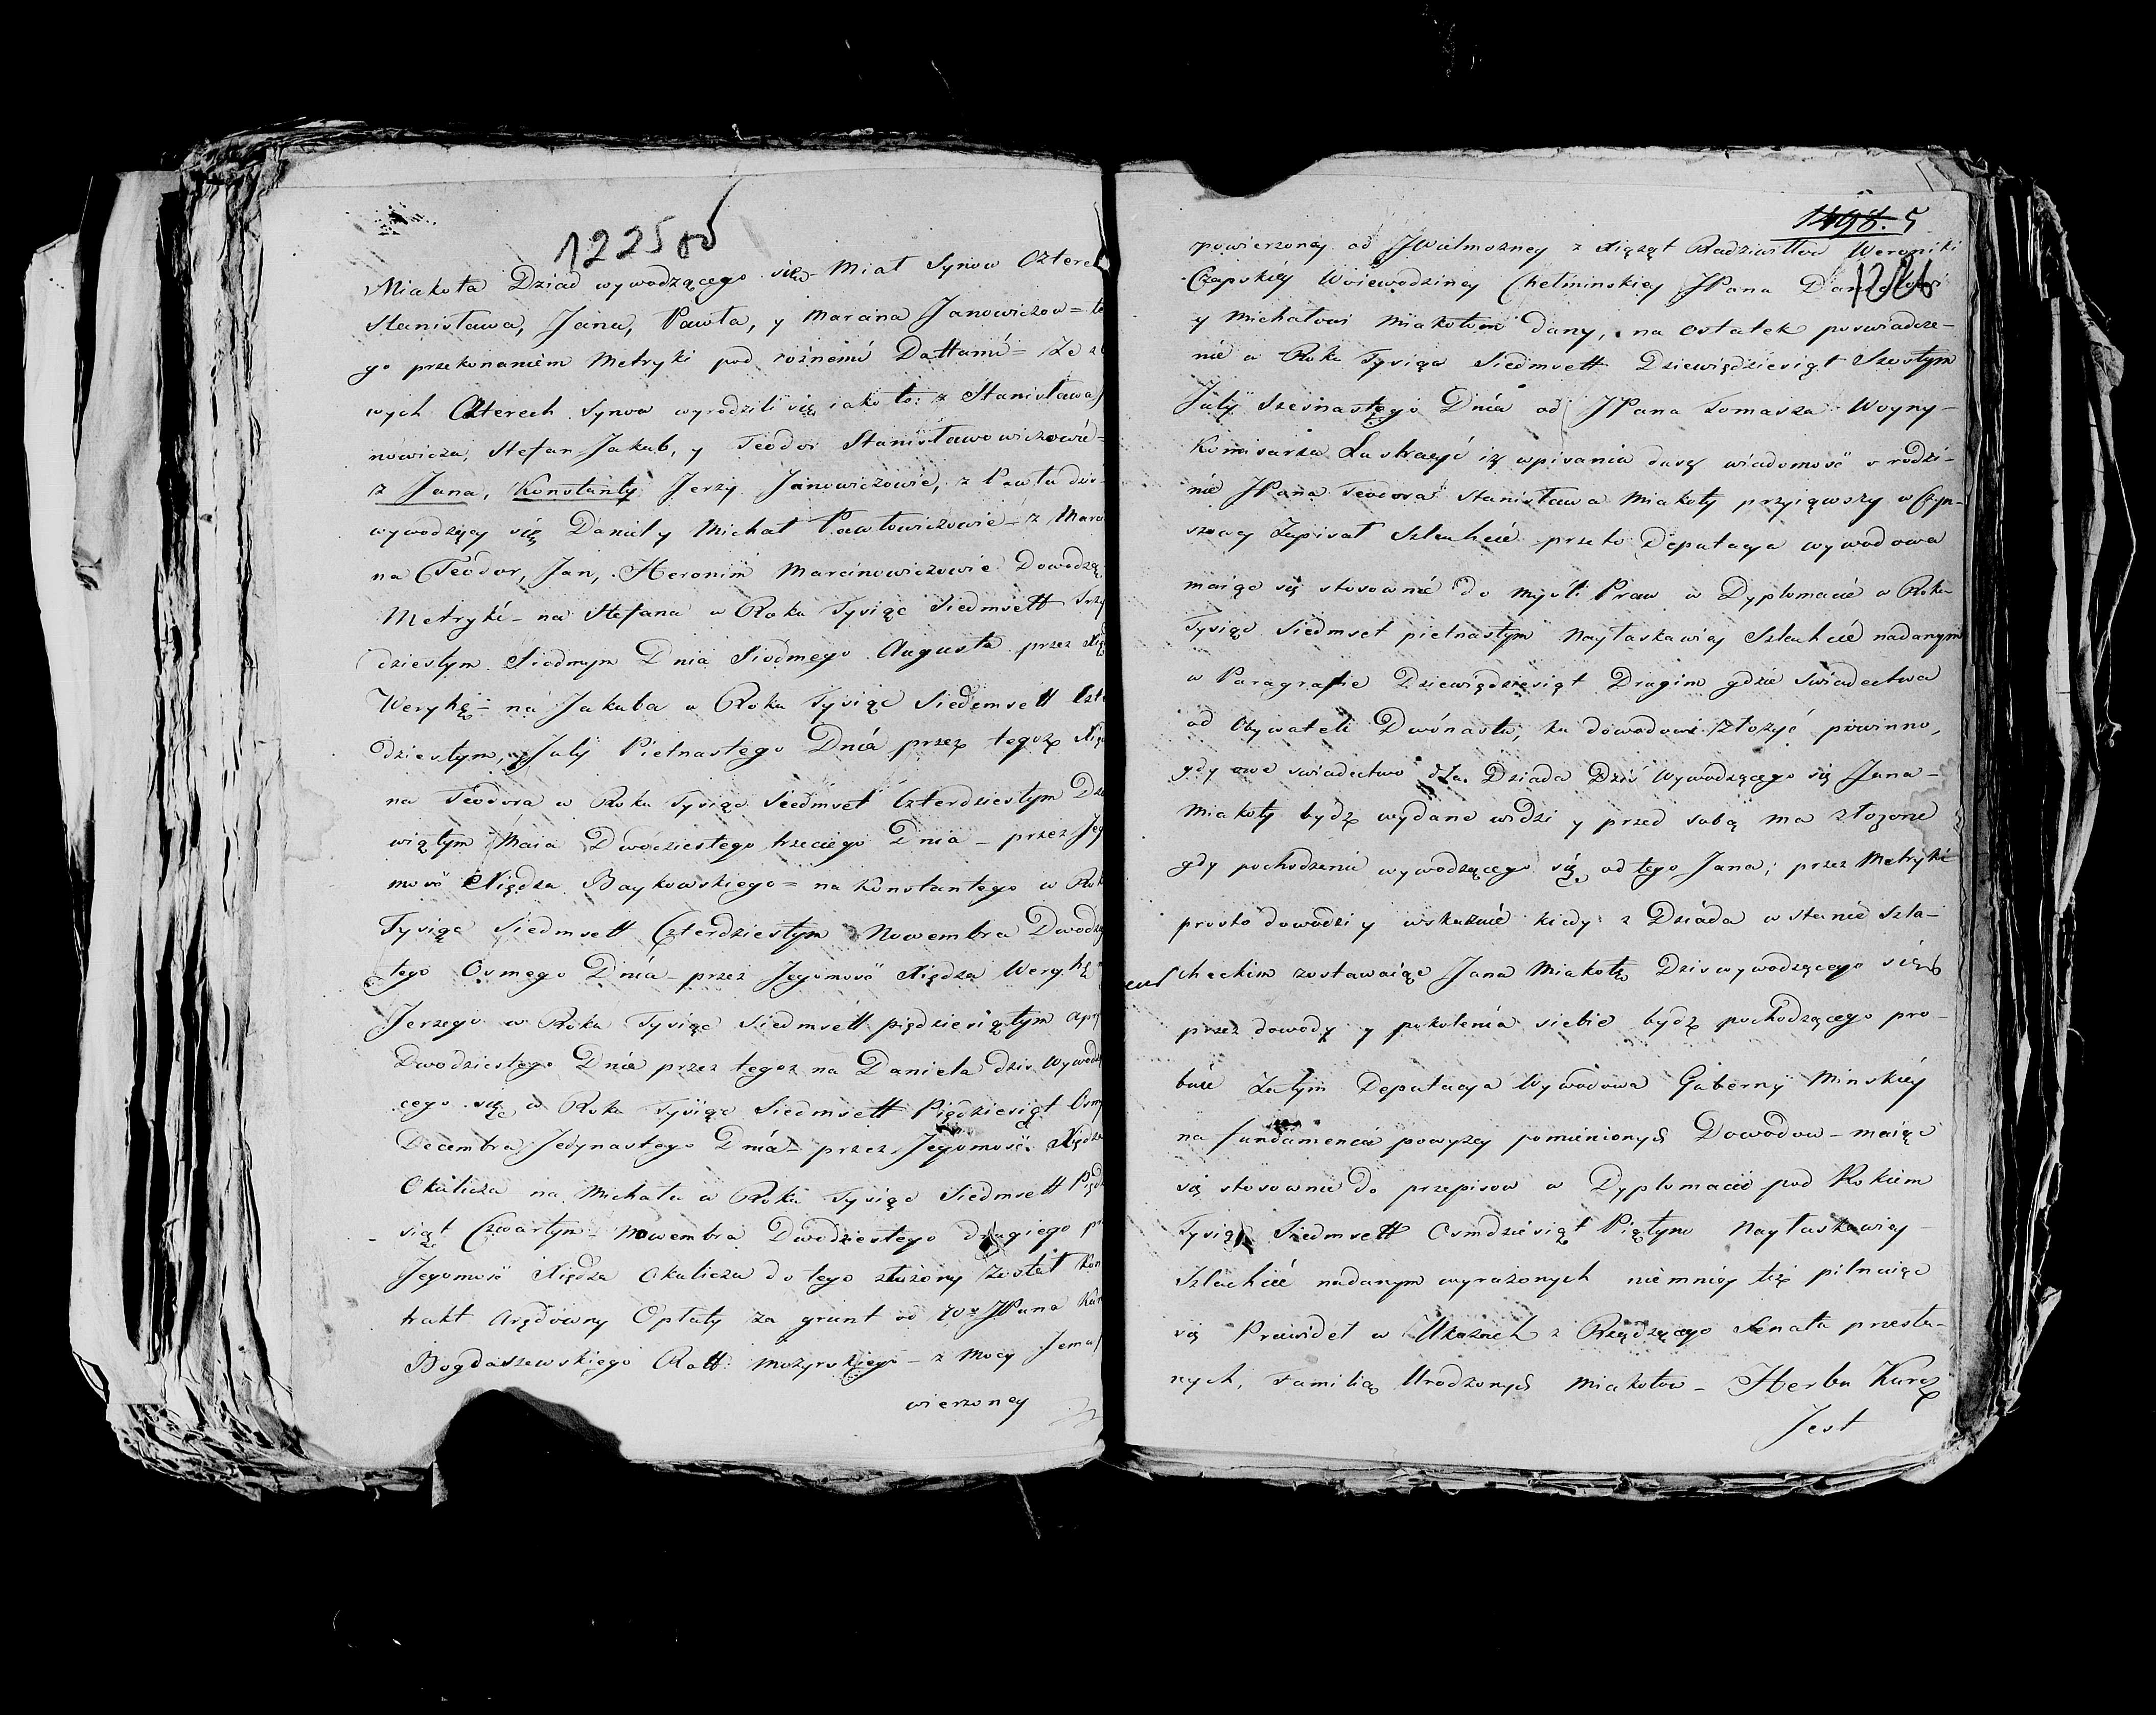 1225 об
Miakota Dziad wywodzącego się - Miał Synow Cztere
Stanisława, Jana, Pawła, y Marcina Janowiczow = te
go przekonaniem Metryki pod rożnemi Dattami = Ze
wych Czterech Synow wyrodzili się iako to: z Stanisława
nowicza, Stefan Jakub, y Teodor Stanisławowiczowie -
z Jana, Konstanty Jerzy Janowiczowie, z Pawła dzis
wywodzący się Daniel y Michał Pawłowiczowie - z Marci
na Teodor, Jan, Heronim Marcinowiczowie Dowodzą
Metryki - na Stefana w Roku Tysiąc Siedmsett Trzy
dziestym Siodmym Dnia Siodmego Augusta przez Xię
Weryhę - na Jakuba w Roku Tysiąc Siedemsett Czte
dziestym, Julij Pietnastego Dnia przez tegoż Xię
na Teodora w Roku Tysiąc Siedmset Czterdziestym Dzie
wiątym Maia Dwódziestego trzeciego Dnia - przez Jeg
mość Xiędza Baykowskiego = na Konstantego w Rok
Tysiąc Siedmsett Czterdziestym Nowembra Dwodzies
tego Osmego Dnia - przez Jegomość Xiędza Weryhę
Jerzego w Roku Tysiąc Siedmsett piędziesiątym Apr
Dwodziestego Dnia przez tegoz na Daniela dzis wywodzą
cego się w Roku Tysiąc Siedmsett Piędziesiąt Osmy
Decembra Jedynastego Dnia - przez Jegomość Xiędza
Okulicza na Michała w Roku Tysiąc Siedmsett Pięd
siąt Czwartym - Nowembra Dwodziestego drugiego p
Jegomość Xiędza Okulicza do tego złożony został Kon
trakt Arędowny Opłaty za grunt od JPana
Bogdaszewskiego Rott: Mozyrskiego - z Mocy Jemu
wierzoney
1498. 5
powierzoney od JWielmozney z Xiążąt Radziwiłłow Weroniki
1226
Czapskiey Woiewodziney Chełminskiey JPana Danielowi
y Michałowi Miakotom dany, na ostatek poswiadcze-
nie w Roku Tysiąc Siedmsett Dziewiędziesiąt Szostym
Julij Szesnastego Dnia od JPana Tomasza Woyny -
Komisarza Lustracyi iż wpisania duszy wiadomość o rodzi-
nie JPana Teodora Stanisława Miakoty przyiąwszy w Czyn-
szowey Zapisał Szlachcie przeto Deputacya wywodowa
maiąc się stosownie do myśli Praw w Dyplomacie w Roku
Tysiąc Siedmset pietnastym Nayłaskawiey Szlachcie nadanym
w Paragrafie Dziewiędziesiąt Drugim gdzie świadectwa
od Obywateli Dwónastu, ku dowodowi złożyć powinno,
gdy owe swiadectwo dla Dziada Dziś wywodzącego się Jana -
Miakoty bydź wydane widzi y przed sobą ma złożone
gdy pochodzenie wywodzącego się od tego Jana; przez Metryki
prosto dowodzi y wskazuie kiedy z Dziada w stanie szla-
checkim zostawaiąc Jana Miakotę Dzis wywodzącego się
przez dowody y pokolenia siebie bydź pochodzącego pro-
buie Zatym Deputacya Wywodowa Gubernij Minskiey
na fundamencie powyzey pomienionych Dowodow - maiąc
się stosownie do przepisow w Dyplomacie pod Rokiem
Tysiąc Siedmsett Osmdziesiąt Piątym Nayłaskawiey -
Szlachcie nadanym wyrażonych niemniey też pilnuiąc
się Prawideł w Ukazach z Rządzącego Senatu przesła-
nych, Familią Urodzonych Miakotow - Herbu Kurcz
Jest